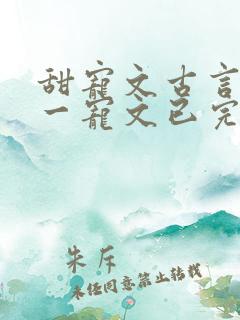 甜寵文古言
一寵文已完
朱斥
未任同意禁止转载